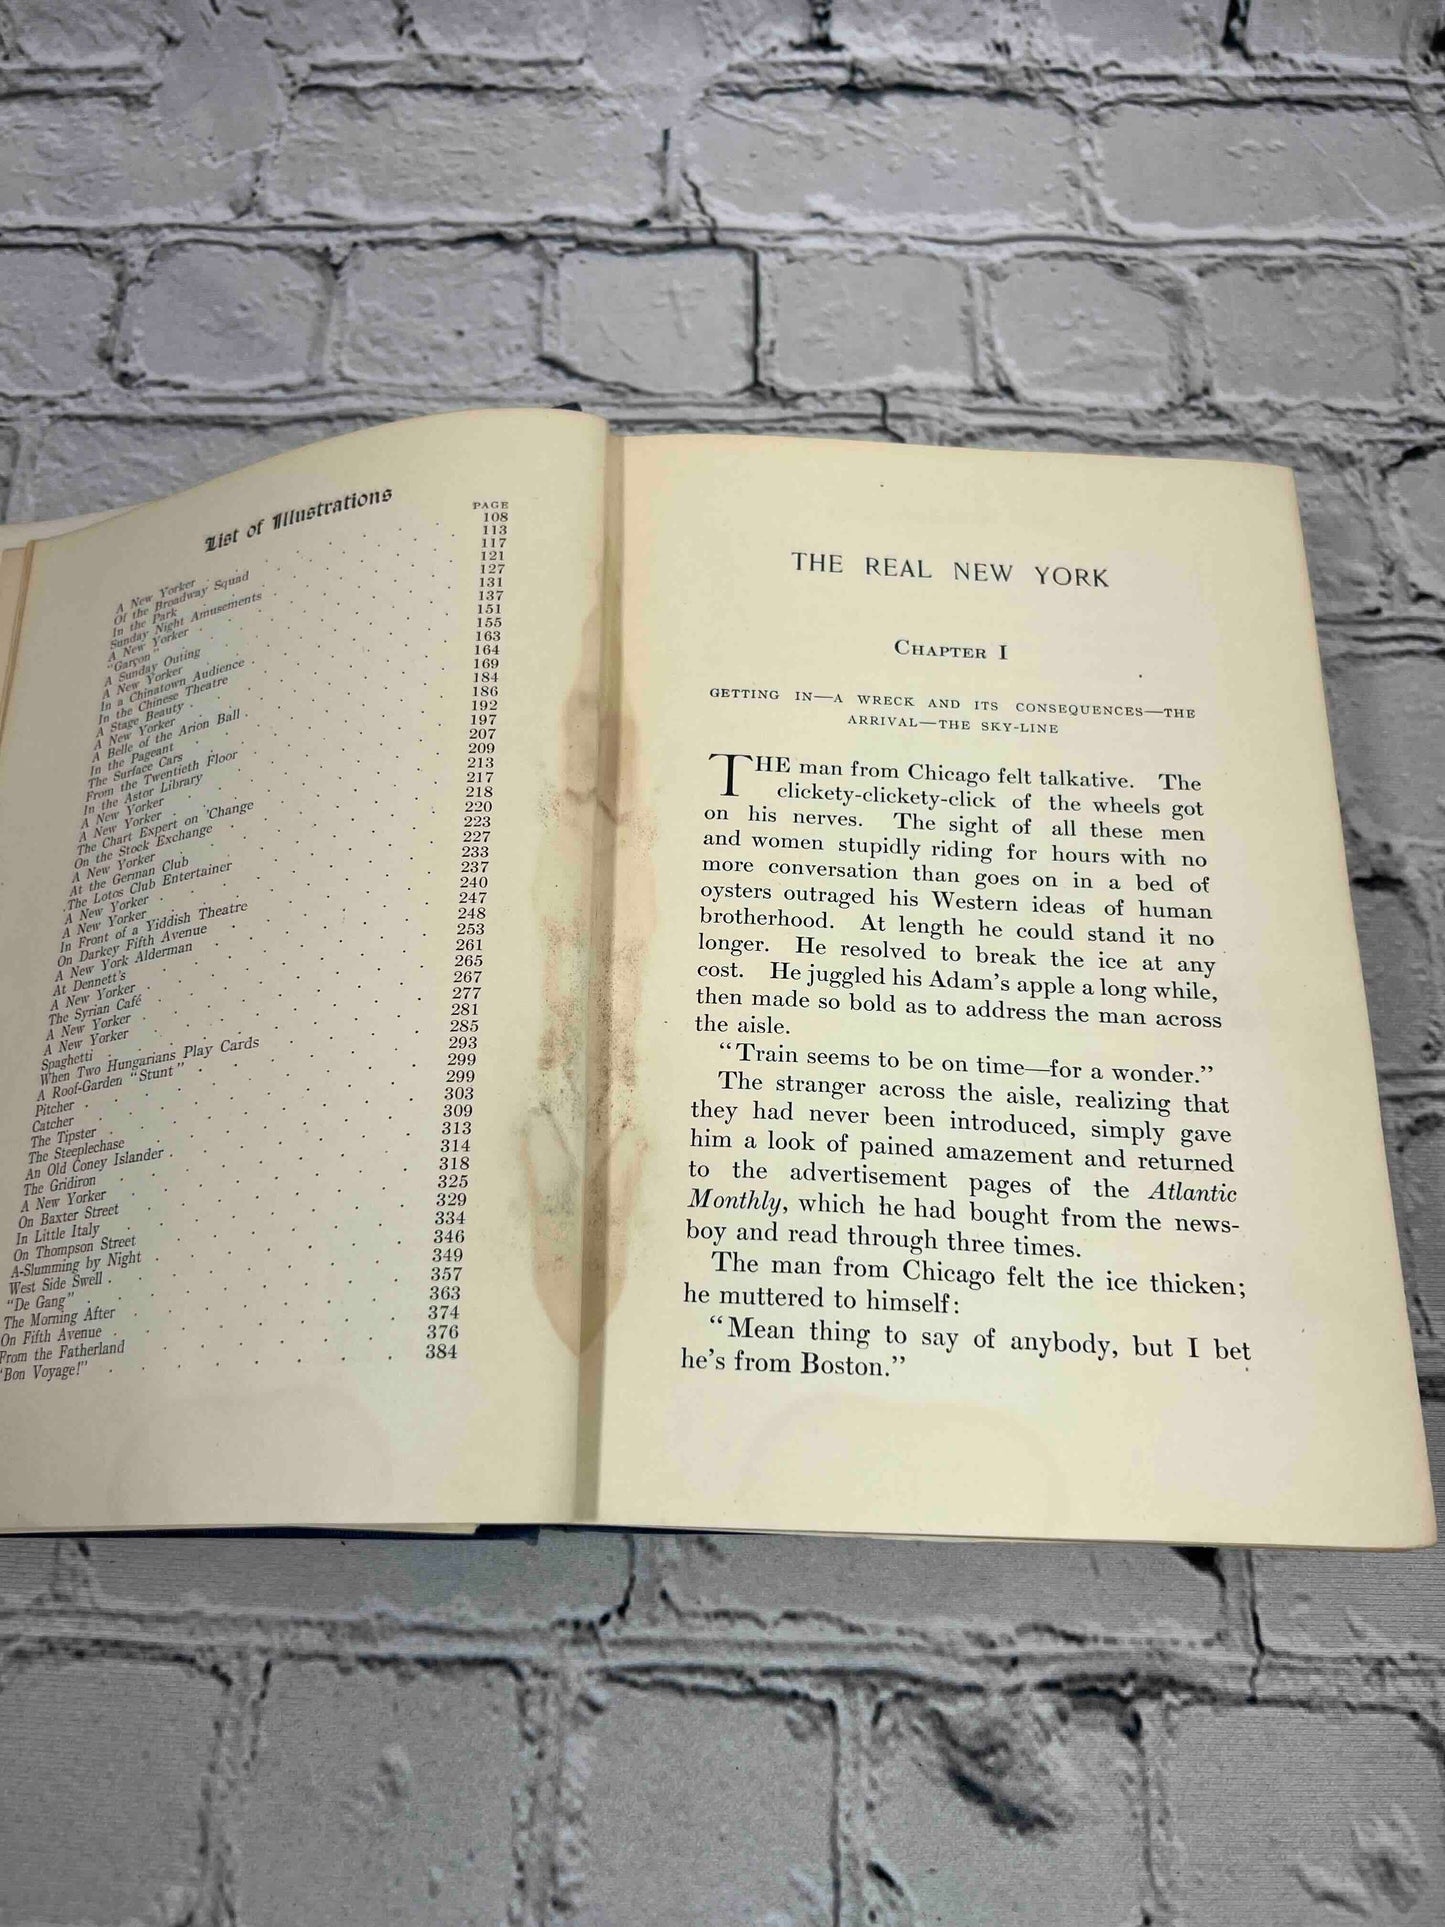 List of Illustrations
PAGE
A New Yorker 108
Of the Broadway Squad 113
In the Park 117
Sunday Night Amusements 121
A New Yorker 127
"Garçon" 131
A Sunday Outing 137
A New Yorker 151
In a Chinatown Audience 155
In the Chinese Theatre 163
A Stage Beauty 164
A New Yorker 169
A Belle of the Arion Ball 184
In the Pageant 186
The Surface Cars 192
From the Twentieth Floor 197
In the Astor Library 207
A New Yorker 209
A New Yorker 213
The Chart Expert on 'Change 217
On the Stock Exchange 218
A New Yorker 220
At the German Club 223
The Lotos Club Entertainer 227
A New Yorker 233
A New Yorker 237
In Front of a Yiddish Theatre 240
On Darkey Fifth Avenue 247
A New York Alderman 248
At Dennett's 253
A New Yorker 261
The Syrian Café 265
A New Yorker 267
A New Yorker 277
Spaghetti 281
When Two Hungarians Play Cards 285
A Roof-Garden "Stunt" 293
Pitcher 299
Catcher 299
The Tipster 303
The Steeplechase 309
An Old Coney Islander 313
The Gridiron 314
A New Yorker 318
On Baxter Street 325
In Little Italy 329
On Thompson Street 334
A-Slumming by Night 346
West Side Swell 349
"De Gang" 357
The Morning After 363
On Fifth Avenue 374
From the Fatherland 376
"Bon Voyage!" 384
THE REAL NEW YORK
CHAPTER I
GETTING IN—A WRECK AND ITS CONSEQUENCES—THE
ARRIVAL—THE SKY-LINE
THE man from Chicago felt talkative. The
clickety-clickety-click of the wheels got
on his nerves. The sight of all these men
and women stupidly riding for hours with no
more conversation than goes on in a bed of
oysters outraged his Western ideas of human
brotherhood. At length he could stand it no
longer. He resolved to break the ice at any
cost. He juggled his Adam's apple a long while,
then made so bold as to address the man across
the aisle.
"Train seems to be on time—for a wonder."
The stranger across the aisle, realizing that
they had never been introduced, simply gave
him a look of pained amazement and returned
to the advertisement pages of the Atlantic
Monthly, which he had bought from the news-
boy and read through three times.
The man from Chicago felt the ice thicken;
he muttered to himself:
"Mean thing to say of anybody, but I bet
he's from Boston."